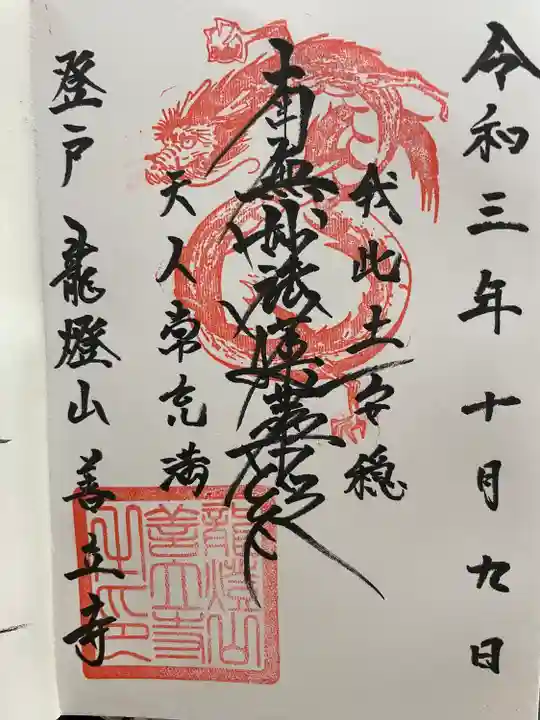 令和三年十月九日
我此土安穏
南無妙法蓮華経
天人常充満
登戸 龍燈山善立寺
龍燈山
善立寺
之印